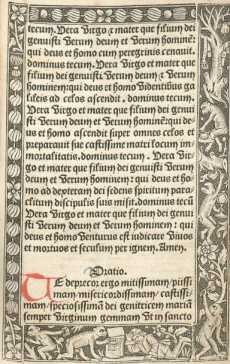 tecum. Vera Virgo ⁊ mater que filium dei
genuisti Verum deum et Verum hominē:
qui deus et homo cum peregrinis cenauit.
dominus tecum. Vera Virgo et mater que
filium dei genuisti Verum deum ⁊ Verum
hominem: qui deus et homo Videntibus ga
lileis ad celos ascendit. dominus tecum.
Vera Virgo et mater que filium dei genui
sti Verum deum et Verum hominē: qui de
us et homo ascendit super omnes celos et
preparauit sue castissime matri locum im
mortalitatis. dominus tecum. Vera Vir
go et mater que filium dei genuisti Verum
deum et Verum hominem: qui deus et ho
mo ad dexteram dei sedens spiritum para
clitum discipulis suis misit. dominus tecū
Vera Virgo et mater que filium dei genui
sti Verum deum et Verum hominem: qui
deus et homo Venturus est iudicare Viuos
et mortuos et seculum per ignem. Amen.
Oratio.
TE deprecor ergo mitissimam/ piissi
mam/ misericordissimam/ castissi
mam/ speciosissimā dei genitricem mariā
semper Virginum gemmam Vt in sancto